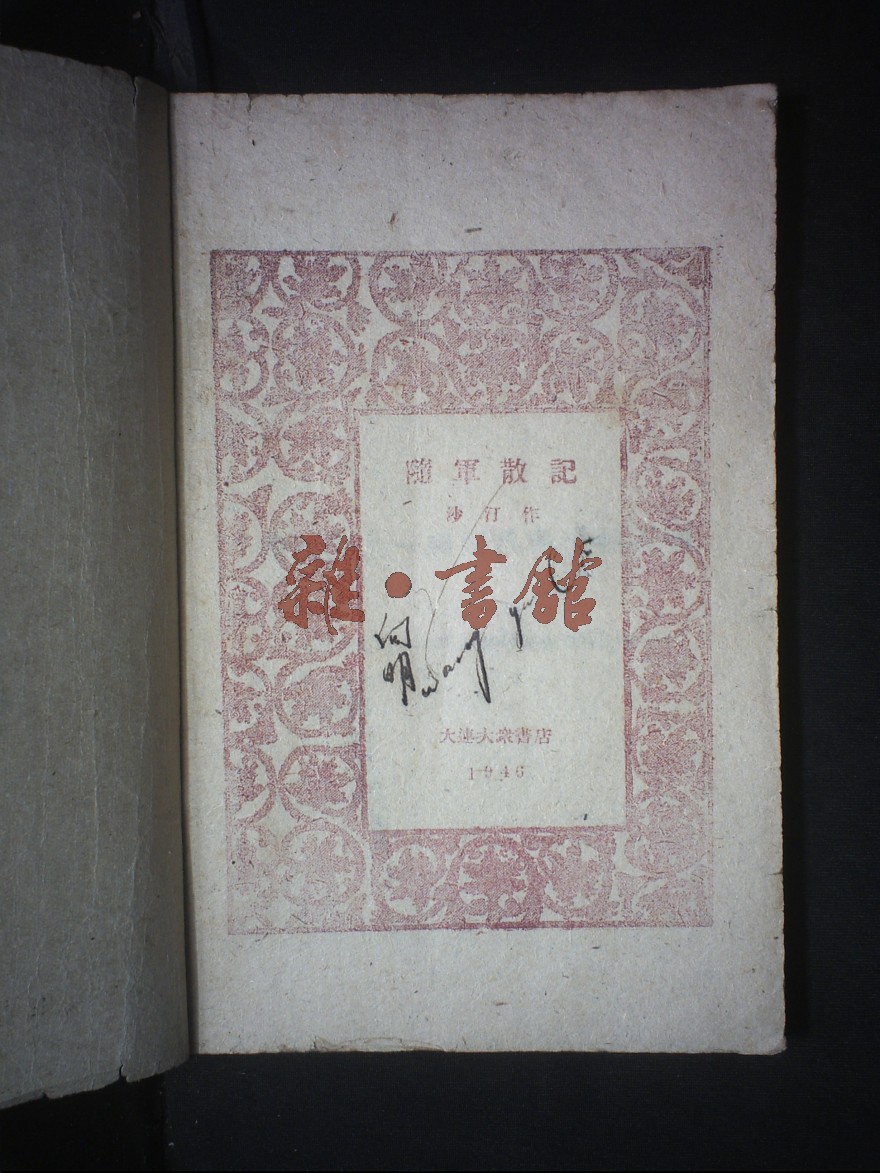 隨軍散記
沙汀作
雜·書館
向明
大連大衆書店
1946